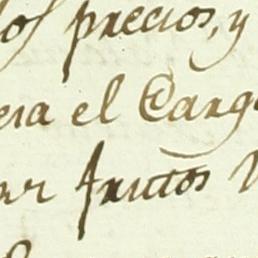 los precios, y
era el Carg
ar frutos